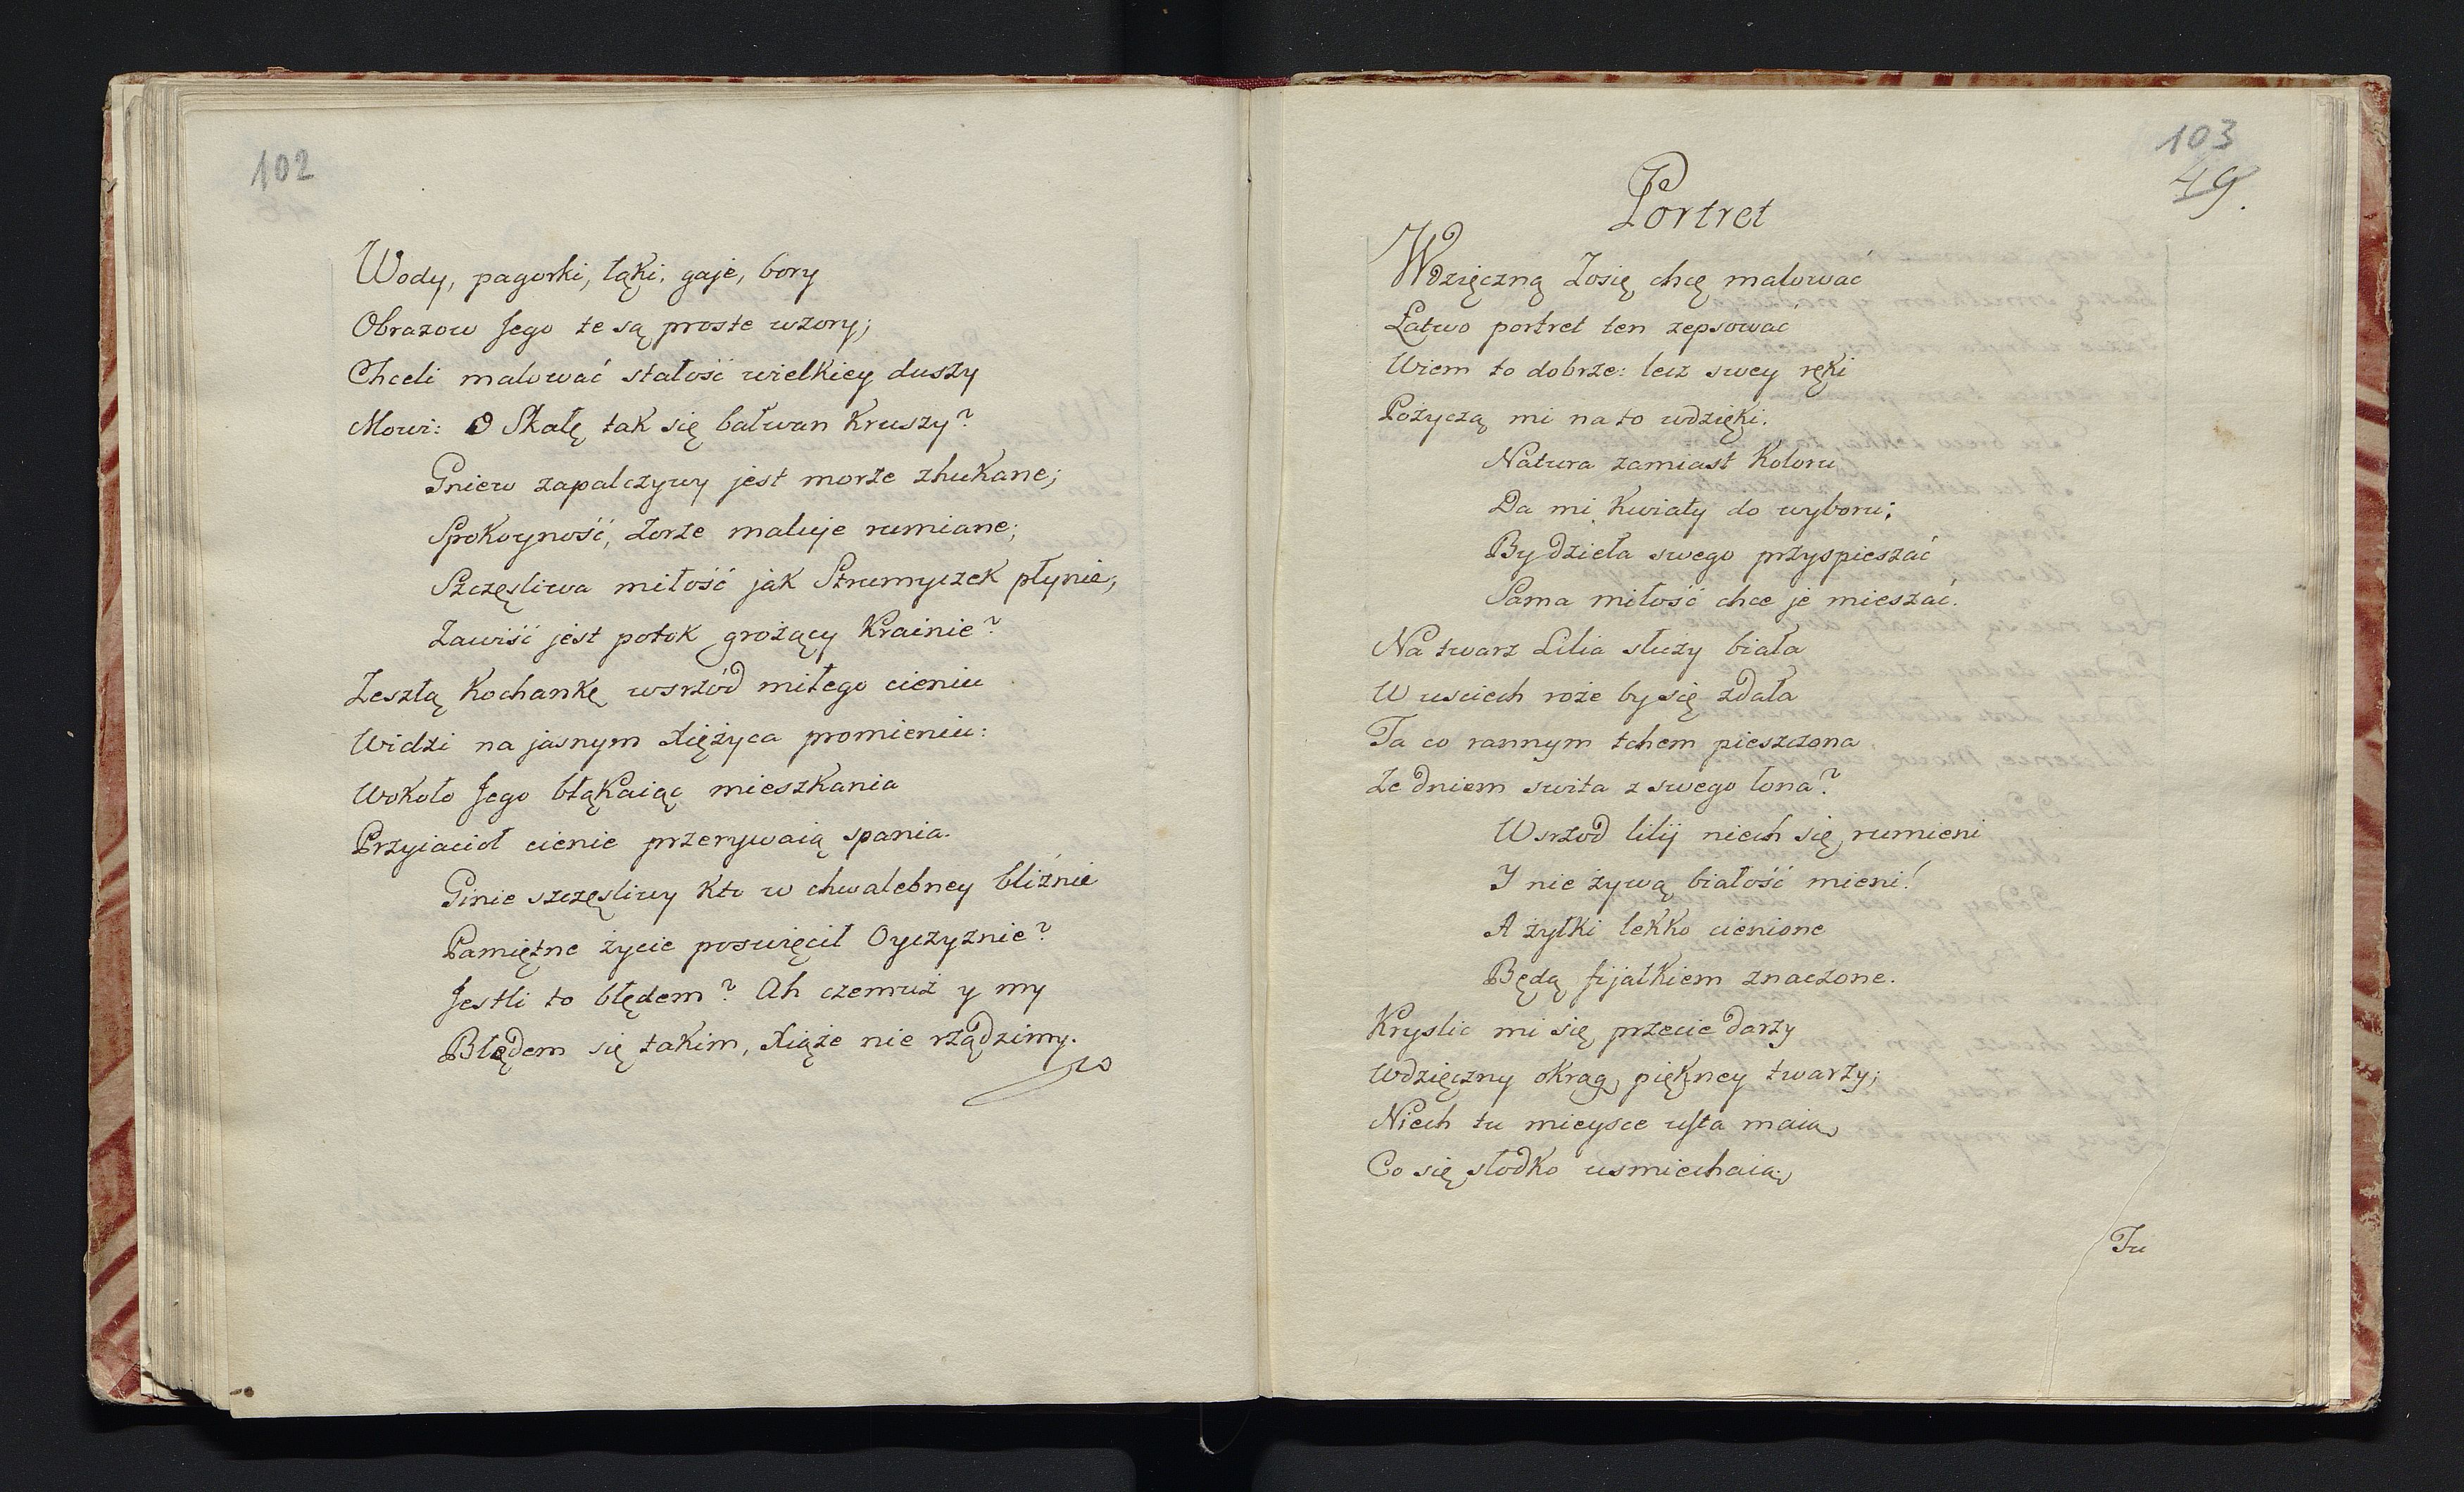 102
Wody, pagorki, łąki, gaje, bory
Obrazow Jego te są proste wzory;
Chceli malować stałość wielkiey duszy
Mowi: O Skałę tak się bałwan kruszy?
Gniew zapalczywy jest morze zhukane;
Spokoyność, Zorze maluje rumiane;
Szczęsliwa miłość jak Strumyczek płynie;
Zawiść jest potok grożący Krainie?
Zeszłą Kochankę wsrzód miłego cieniu
Widzi na jasnym Xiężyca promieniu:
Wokoło Jego błąkaiąc mieszkania
Przyiacioł cienie przerywaią spania.
Ginie szczęsliwy kto w chwalebney bliźnie
Pamiętne życie poswięcił Oyczyznie?
Jestli to błędem? Ah czemuż y my
Błędem się takim, Xiąże nie rządzimy.
103
49.
Portret
Wdzięczną Zosię chcę malować
Łatwo portret ten zepsować
Wiem to dobrze: lecz swey ręki
Pożyczą mi na to wdzięki.
Natura zamiast Koloru
Da mi Kwiaty do wyboru;
By dzieła swego przyspieszać
Sama miłość chce je mieszać.
Na twarz Lilia służy biała
W usciech roże by się zdała
Ta co rannym tchem pieszczona
Ze dniem swita z swego łona?
Wsrzod lilij niech się rumieni
I nie żywą białość mieni!
A żyłki lekko cienione
Będą fijałkiem znaczone.
Kryslic mi się przecie darzy
Wdzięczny okrąg piękney twarzy;
Niech tu mieysce usta maią
Co się słodko usmiechaią,
Tu